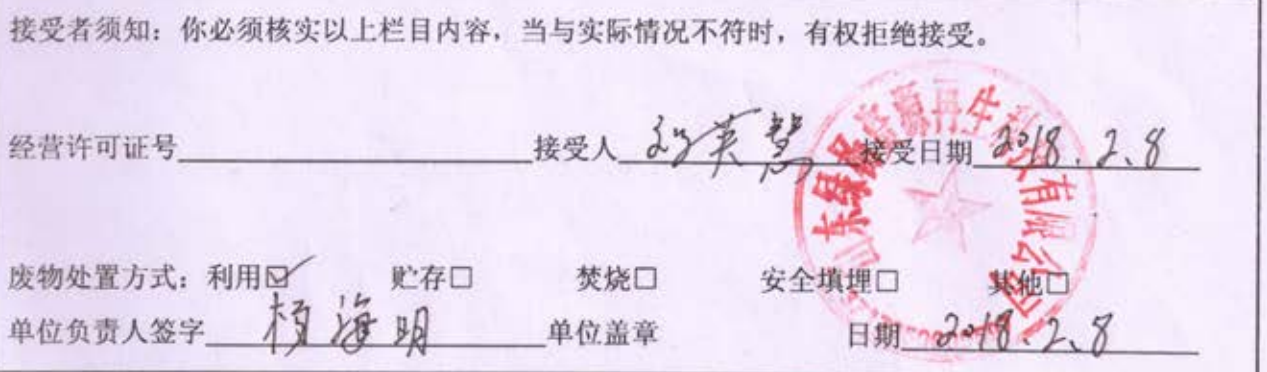 接受者须知：你必须核实以上栏目内容，当与实际情况不符时，有权拒绝接受。
经营许可证号 接受人 英慧 接受日期 2018.2.8
废物处置方式：利用☑ 贮存□ 焚烧□ 安全填埋□ 其他□
单位负责人签字 海明 单位盖章 日期 2018.2.8
山东绿 再生 有限公司